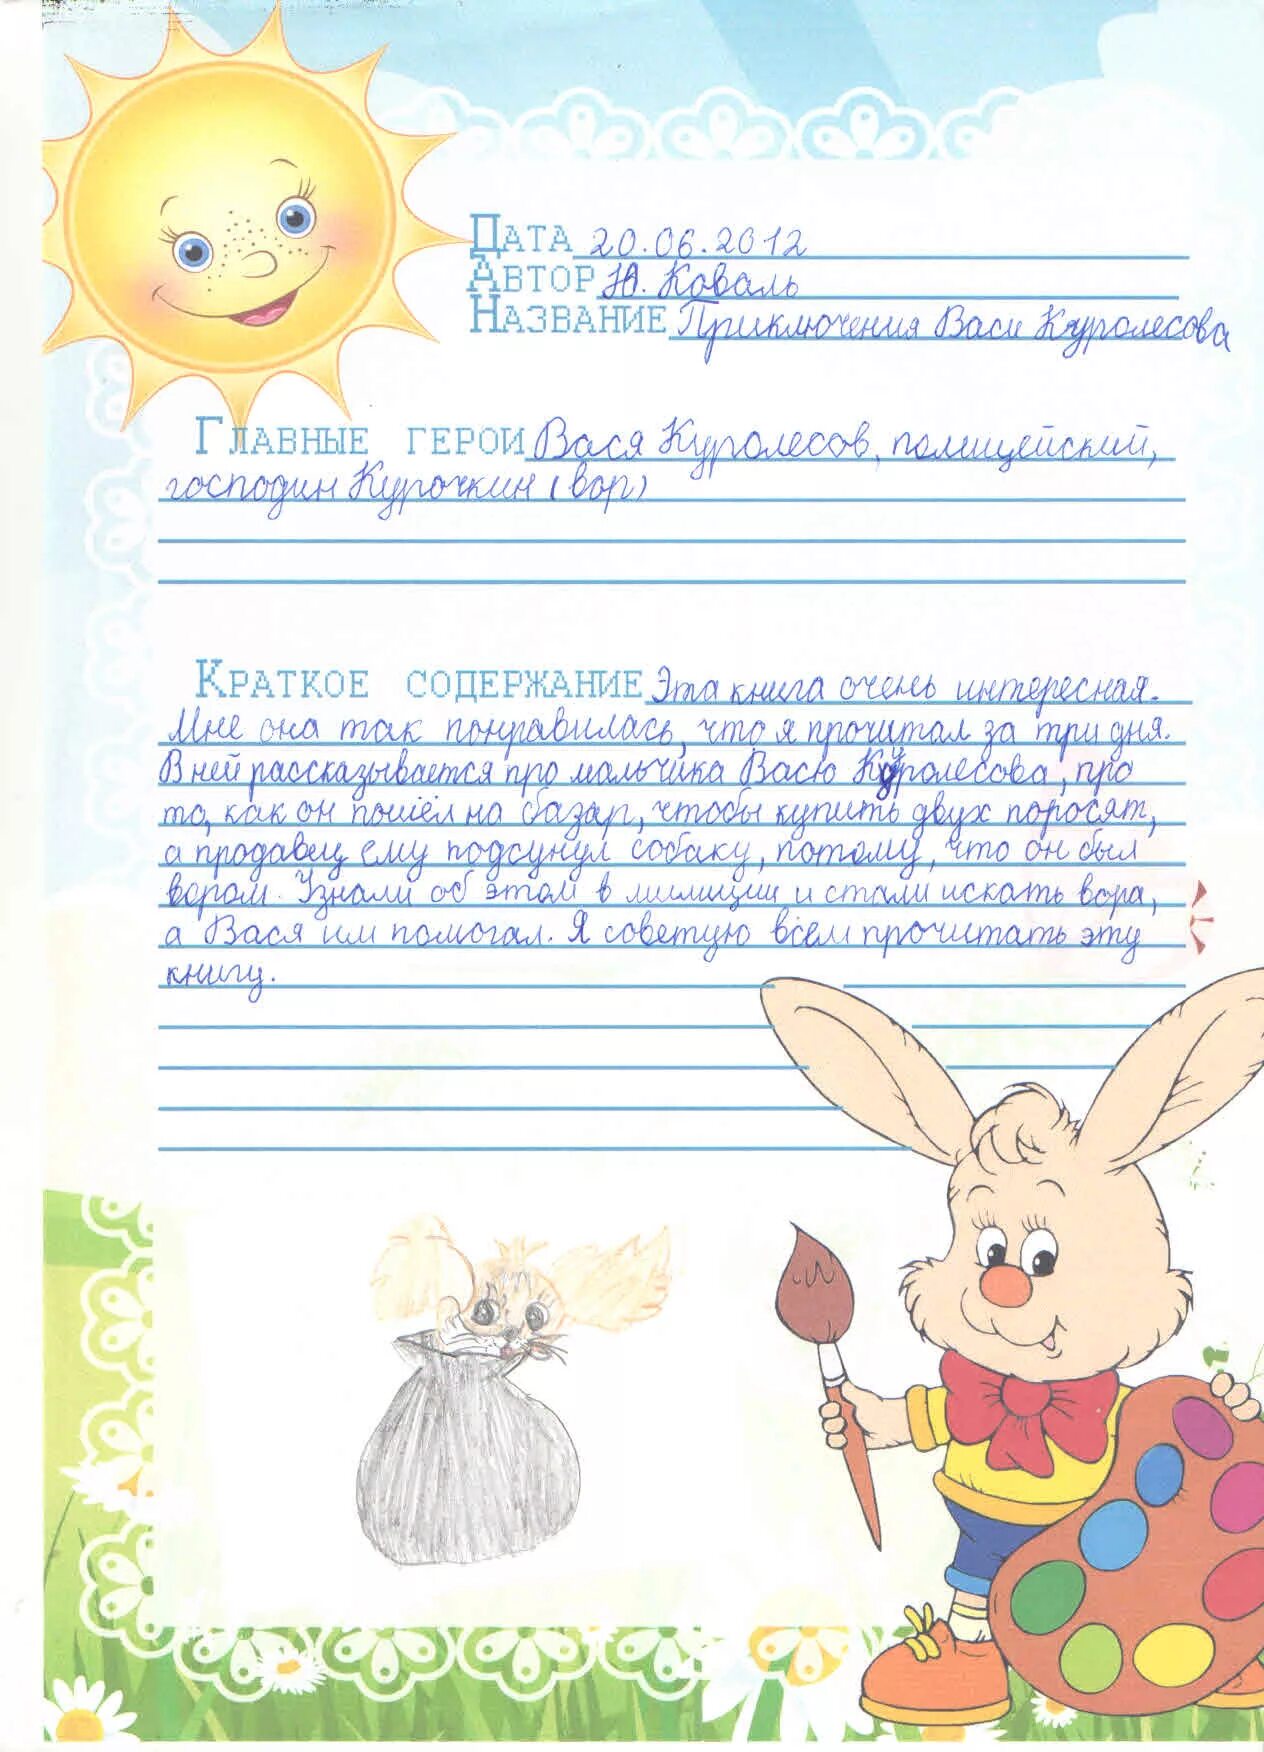 Дата 20.06.2012
Автор Ю. Коваль
Название Приключения Васи Куролесова
Главные герои Вася Куролесов, полицейский,
господин Курочкин (вор)
Краткое содержание Эта книга очень интересная.
Мне она так понравилась, что я прочитал за три дня.
В ней рассказывается про мальчика Васю Куролесова, про
то, как он пошёл на базар, чтобы купить двух поросят,
а продавец ему подсунул собаку, потому, что он был
вором. Узнали об этом в милиции и стали искать вора,
а Вася им помогал. Я советую всем прочитать эту
книгу.